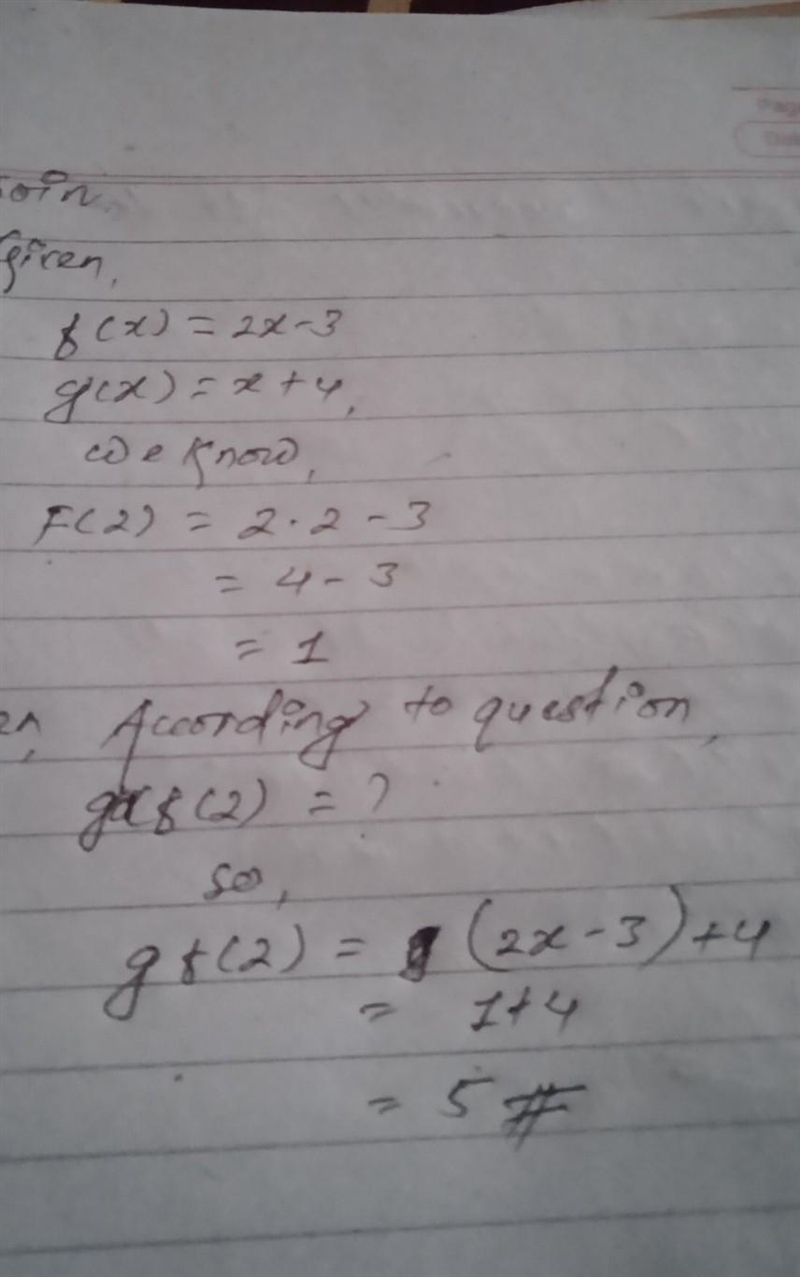 soln
Given,
f(x) = 2x-3
g(x) = x+4,
we know,
F(2) = 2.2-3
= 4-3
= 1
According to question,
gf(2) = ?
so,
gf(2) = (2x-3)+4
= 1+4
= 5 #